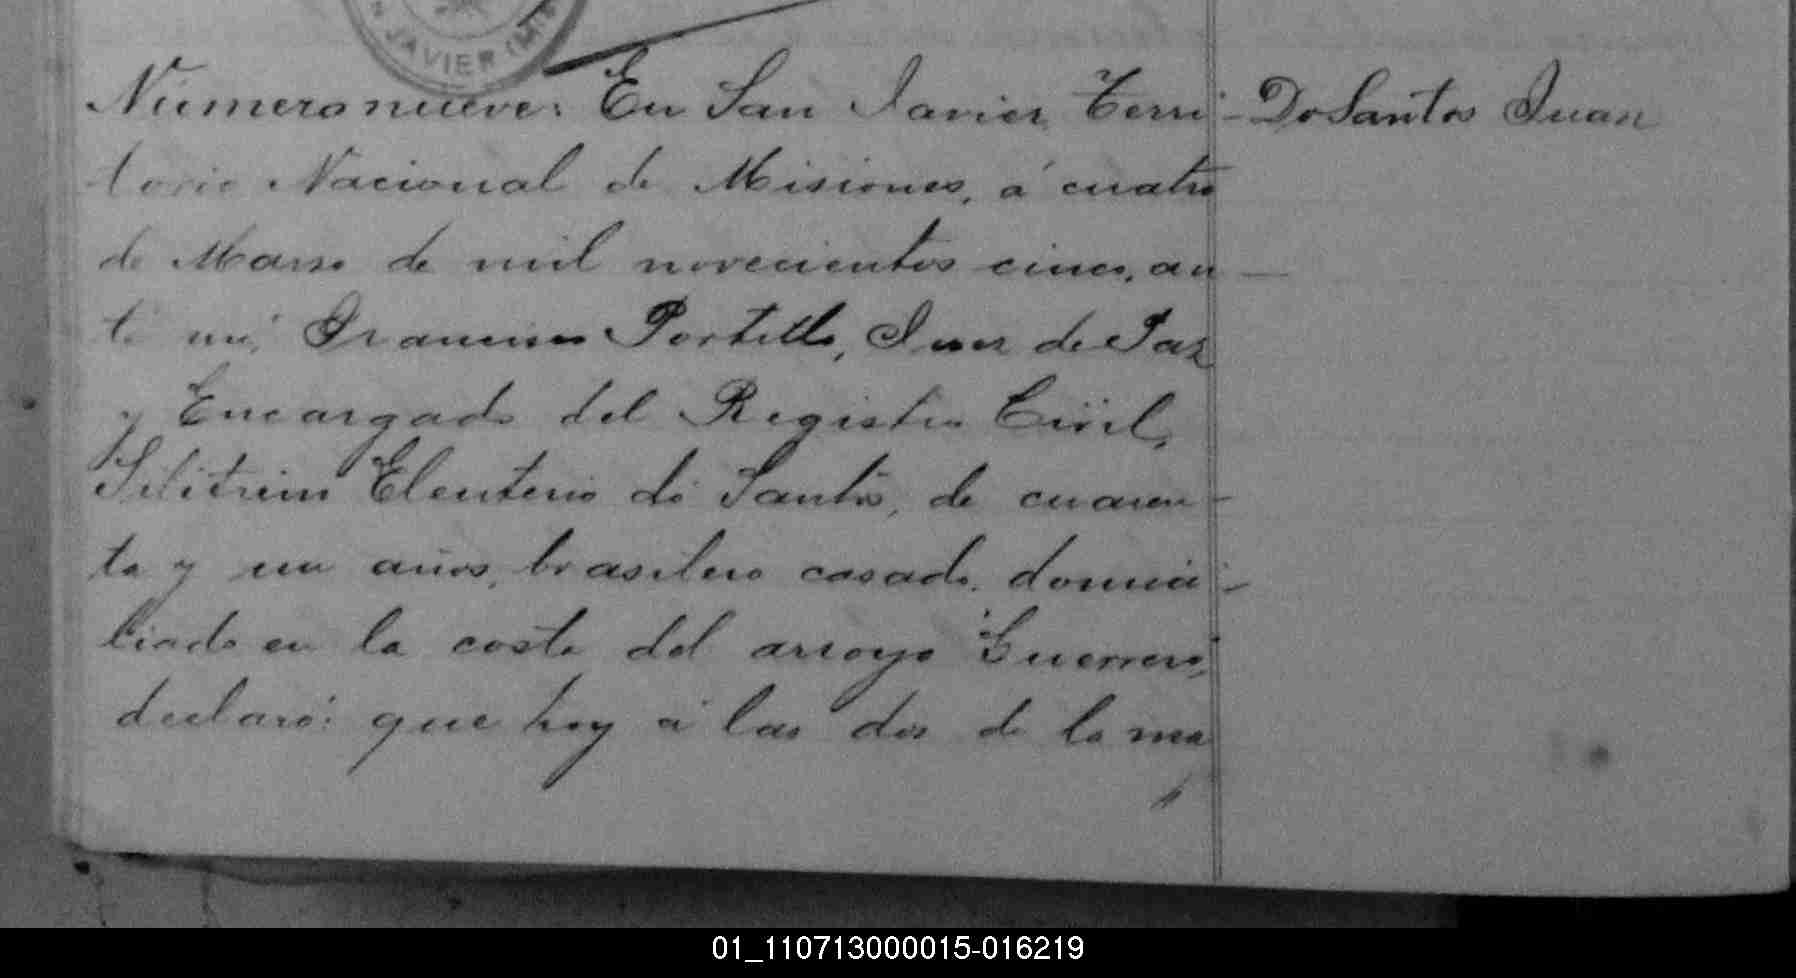 JAVIER (MIS
Número nueve: En San Javier Terri- Do Santos Juan
torio Nacional de Misiones, á cuatro
de Marso de mil novecientos cinco, an
te mí, Francisco Portillo, Juez de Paz
y Encargado del Registro Civil,
Eleuterio do Santos, de cuaren-
ta y un años, brasilero casado, domici-
liado en la costa del arroyo Guerrero,
declaró: que hoy á las dos de la ma
01_110713000015-016219